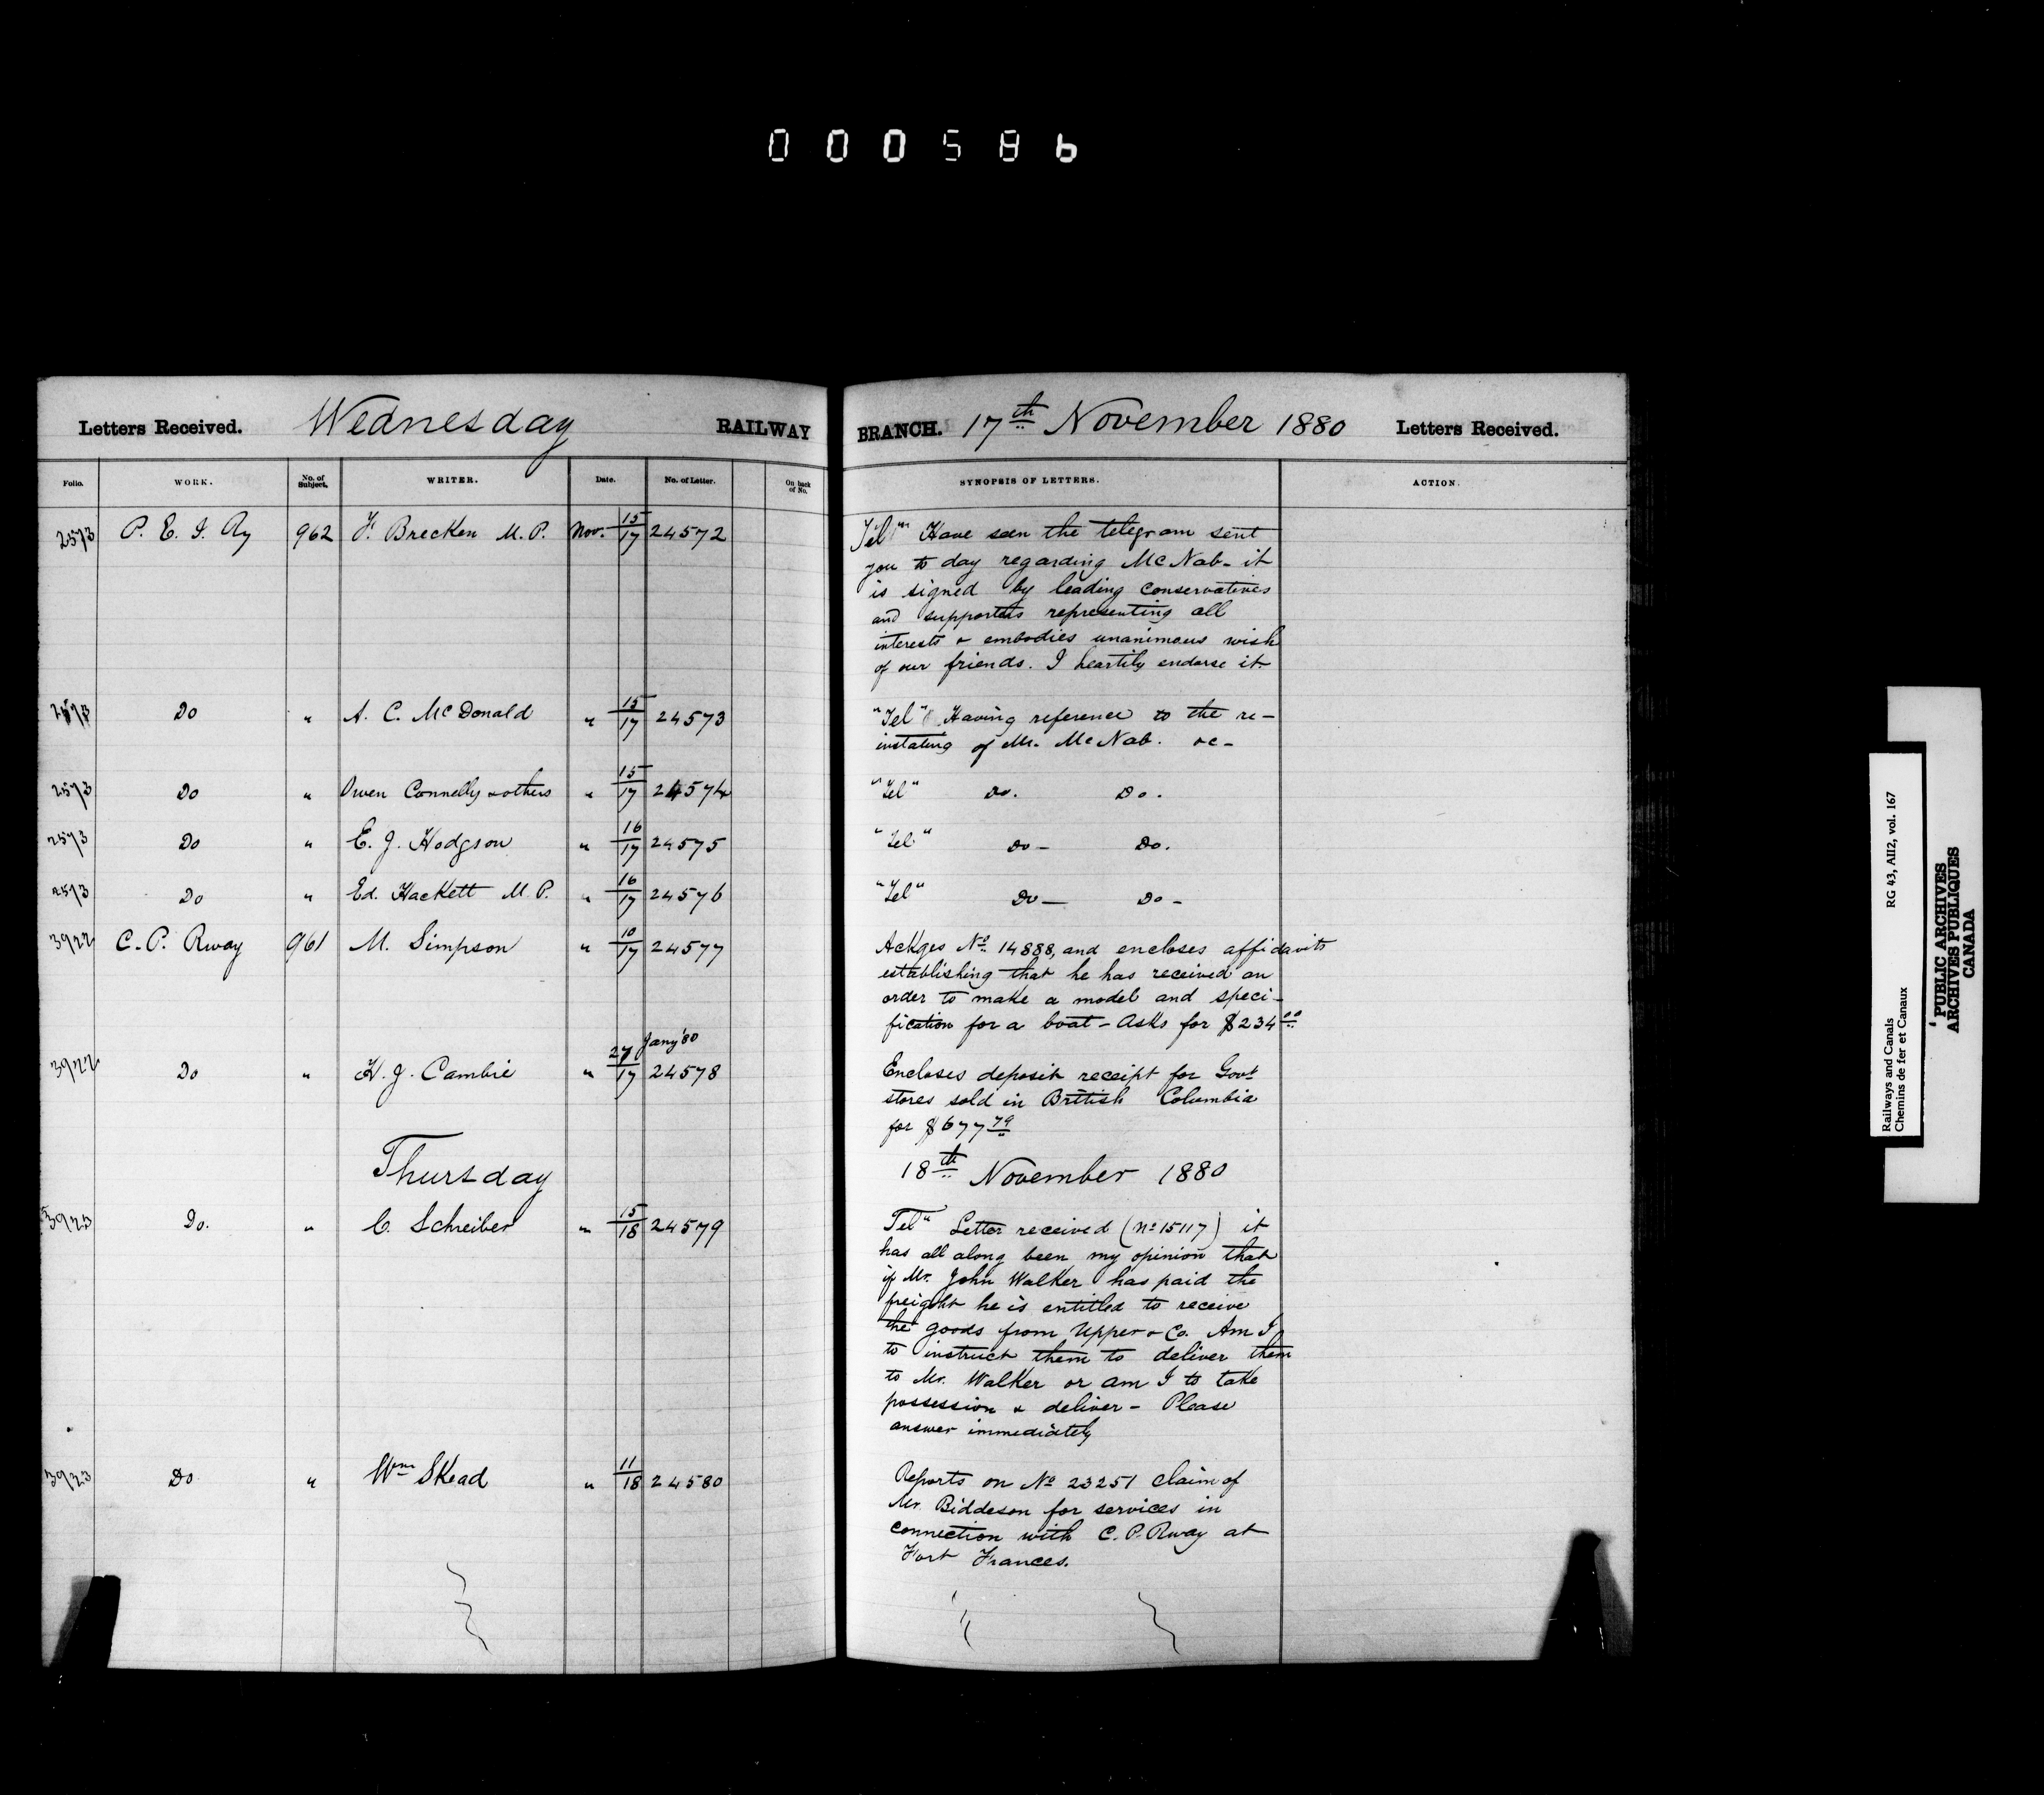 000586
Letters Received. Wednesday RAILWAY BRANCH. 17th November 1880 Letters Received.
Folio. WORK. No. of Subject. WRITER. Date. No. of Letter. On back of No. SYNOPSIS OF LETTERS. ACTION.
2573 P. E. I. Ry 962 F. Brecken M. P. Nov. 15/17 24572 Tel" Have seen the telegram sent
you to day regarding McNab - it
is signed by leading conservatives
and supporters representing all
interests & embodies unanimous wish
of our friends. I heartily endorse it
2573 Do " A. C. McDonald " 15/17 24573 "Tel" Having reference to the re-
instating of Mr. McNab. &c-
2573 Do " Owen Connelly & others " 15/17 24574 "Tel" Do. Do.
2573 Do " E. J. Hodgson " 16/17 24575 "Tel" Do- Do.
2573 Do " Ed. Hackett M. P. " 16/17 24576 "Tel" Do- Do-
3922 C. P. Rway 961 M. Simpson " 10/17 24577 Ackges No. 14888, and encloses affidavits
establishing that he has received an
order to make a model and speci-
fication for a boat - Asks for $234 00
3922 Do " H. J. Cambie " 27 Jany '80/17 24578 Encloses deposit receipt for Govt
stores sold in British Columbia
for $677 79
Thursday 18th November 1880
3923 Do. " C. Schreiber " 15/18 24579 Tel" Letter received (No 15117) it
has all along been my opinion that
if Mr. John Walker has paid the
freight he is entitled to receive
the goods from Upper & Co. Am I
to instruct them to deliver them
to Mr. Walker or am I to take
possession & deliver - Please
answer immediately
3923 Do " Wm Skead " 11/18 24580 Reports on No 23251 claim of
Mr. Biddeson for services in
connection with C. P. Rway at
Fort Frances.
Railways and Canals RG 43, AII2, vol. 167
Chemins de fer et Canaux
PUBLIC ARCHIVES
ARCHIVES PUBLIQUES
CANADA